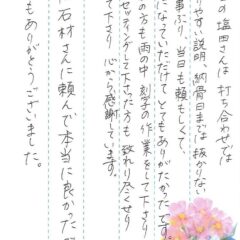 の塩田さんは 打ち合わせでは
りやすい説明、納骨日までは 抜かりない
事ぶり、当日も 頼もしくて、
になっていただけて とてもありがたかったです
の方も 雨の中 刻字の作業をして下さり
セッティングして下さった方も 致れり尽くせり
して下さり 心から感謝しています。
石材さんに頼んで本当に良かった
もありがとうございました。